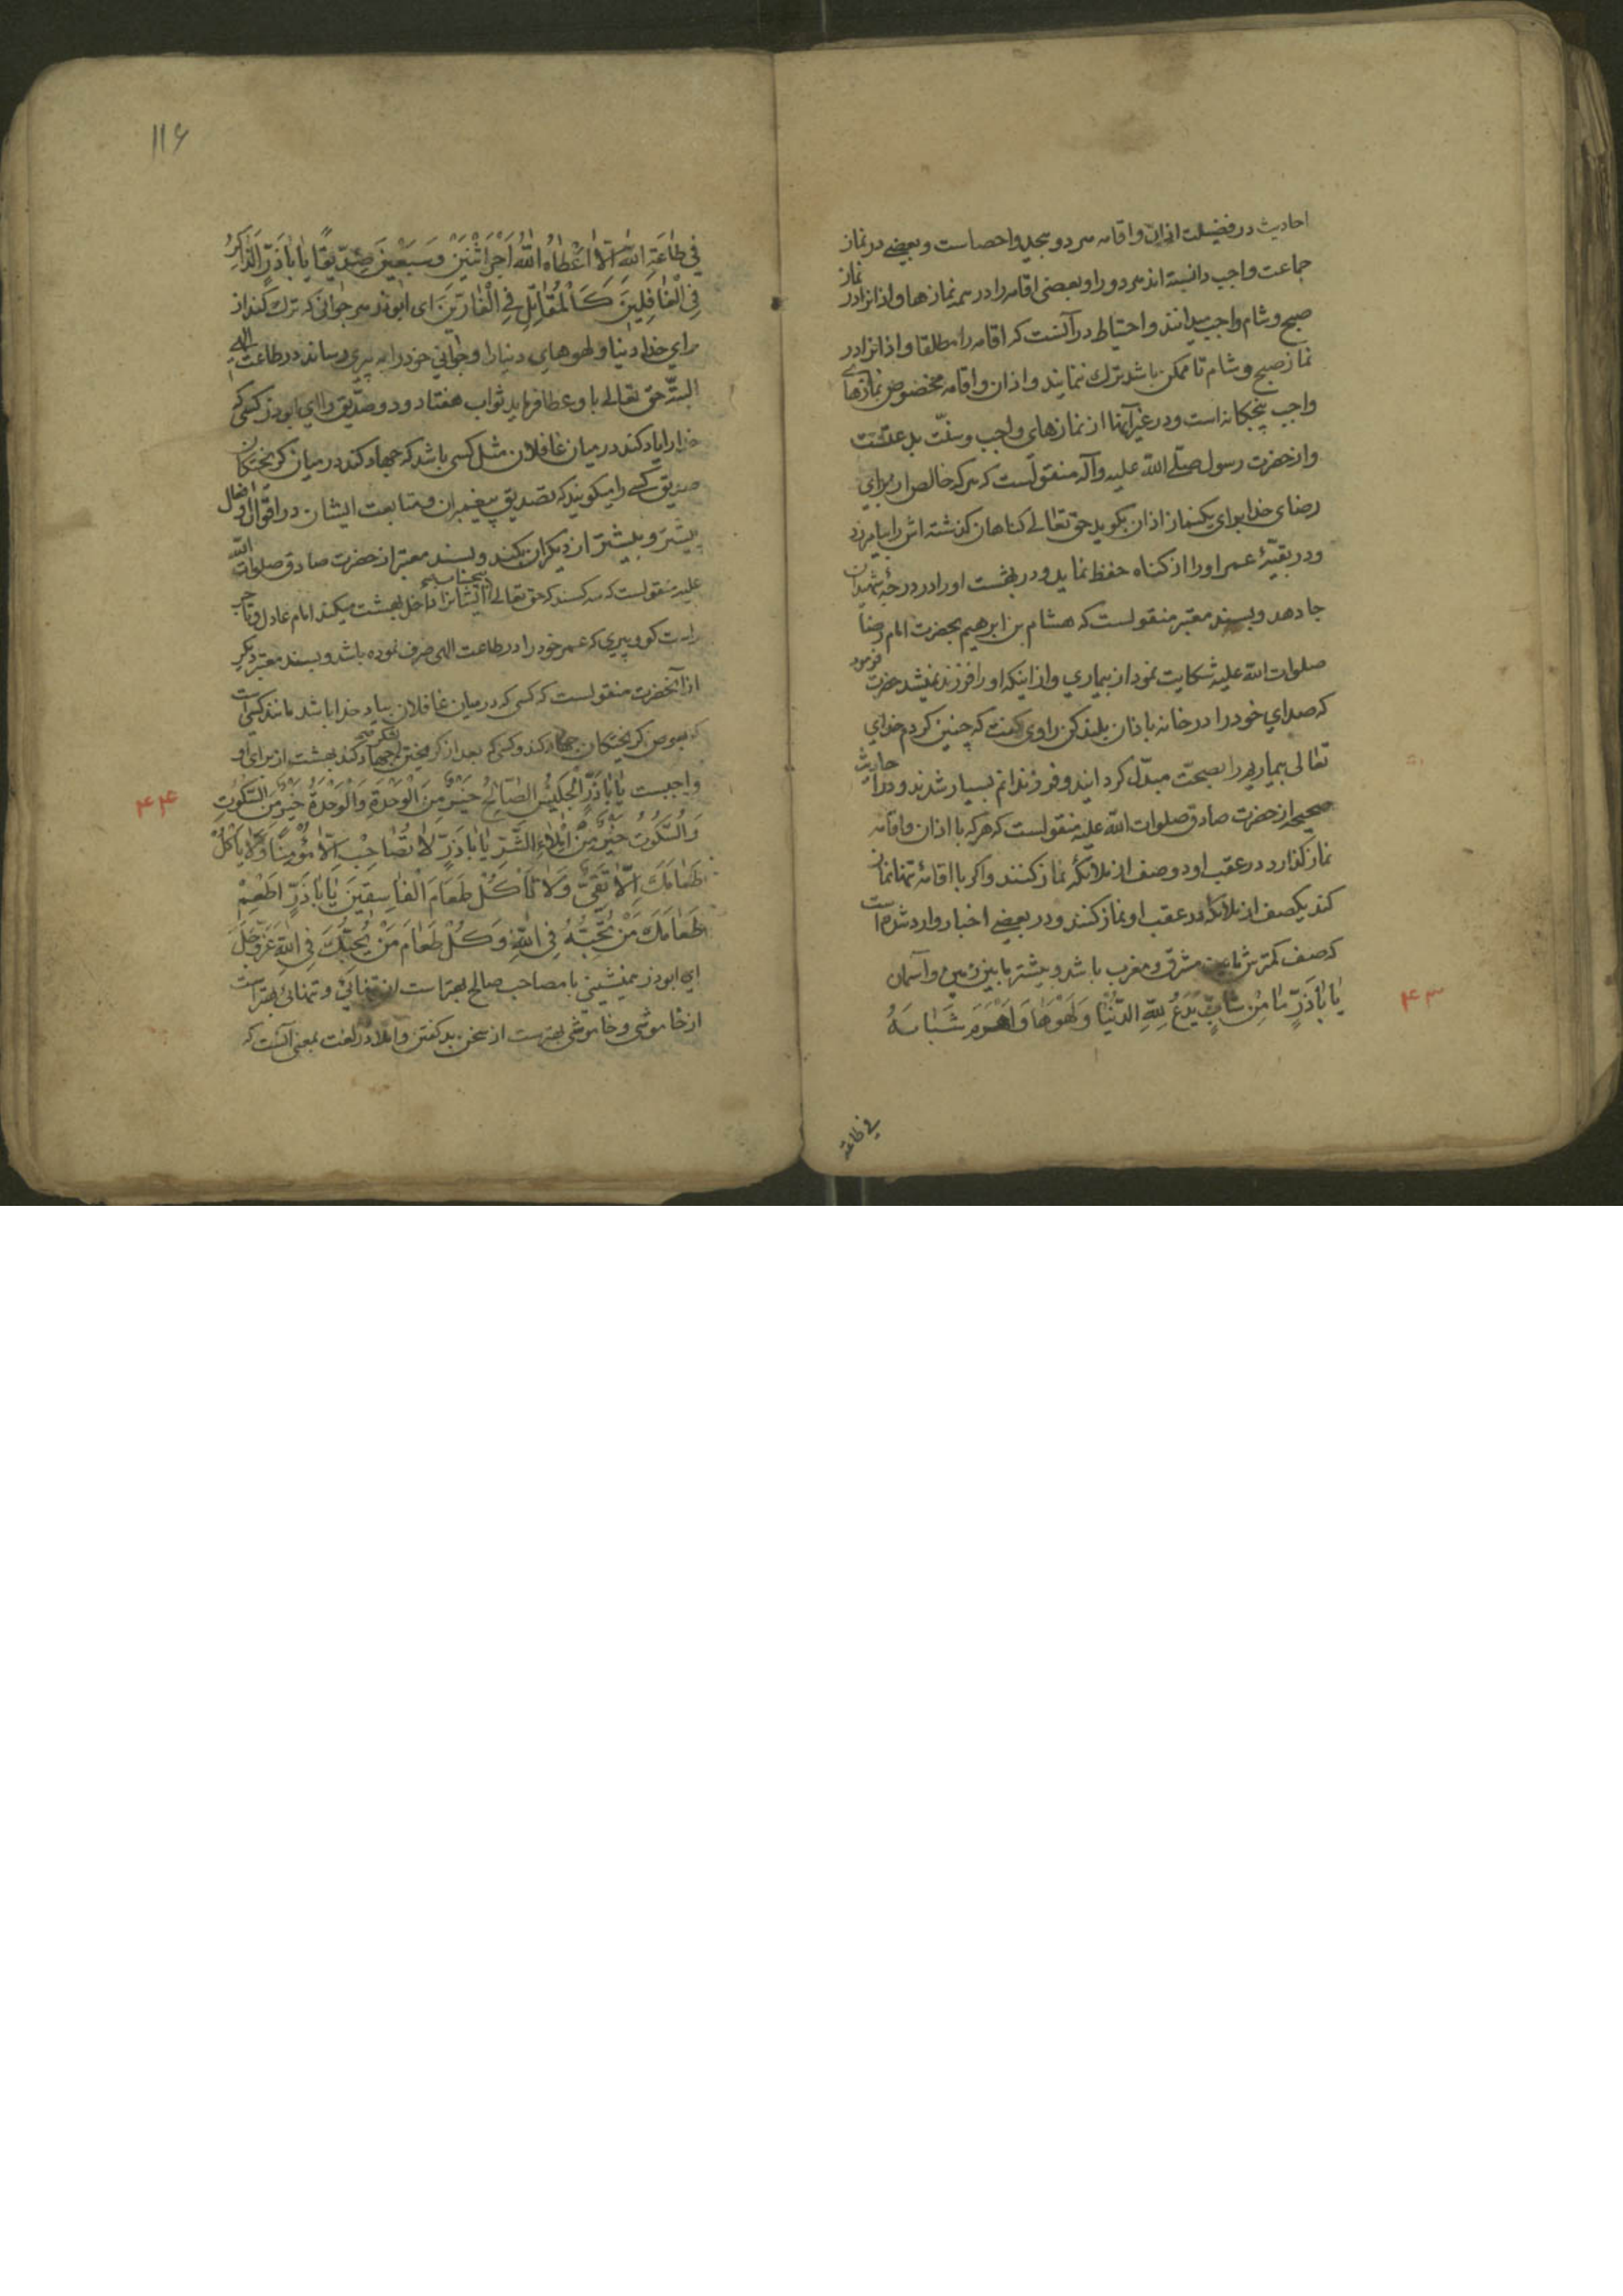 احادیث در فضیلت اذان و اقامه هر دو بیحد و احصاست و بعضی در نماز
جماعت واجب دانسته اند هر دو را و بعضی اقامه را در همه نمازها و اذانرا در نماز
صبح و شام واجب میدانند و احتیاط در آنست که اقامه را مطلقا و اذانرا در
نماز صبح و شام تا ممکن باشد ترک ننمایند و اذان و اقامه مخصوص نمازهای
واجب پنجگانه است و در غیر آنها از نمازهای واجب و سنّت بدعتست
و از حضرت رسول صلّی الله علیه وآله منقولست که هر که خالص از برای
رضای خدا برای یکنماز اذان بگوید حق تعالی کناهان کذشته اش را بیامرزد
و در بقیّهٔ عمر او را از کناه حفظ نماید و در بهشت او را در درجهٔ شهیدان
جا دهد و بسند معتبر منقولست که هشام بن ابرهیم بحضرت امام رضا
صلوات الله علیه شکایت نمود از بیماری و از اینکه او را فرزند نمیشد حضرت فرمود
که صدای خود را در خانه باذان بلند کن راوی کفت که چنین کردم خدای
تعالی بیماریم را بصحت مبدّل کردانید و فرزندانم بسیار شدند و در احادیث
صحیحه از حضرت صادق صلوات الله علیه منقولست که هر که با اذان و اقامه
نماز کذارد در عقب او دو صف از ملائکه نماز کنند و اکر با اقامهٔ تنها نماز
کند یکصف از ملائکه در عقب او نماز کنند و در بعضی اخبار وارد شده است
که صف کمترش مابین مشرق و مغرب باشد و بیشتر مابین زمین و آسمان
یا اباذَرٍّ ما مِن شابٍّ یَدَعُ لِلّهِ الدُّنْیا وَلَهْوَها وَاَهْرَمَ شَبابَهُ
۴۳
فی طاعة
116
فی طاعَةِ اللهِ اِلّا اَعْطاهُ اللهُ اَجْرَ اثْنَیْنِ وَ سَبْعینَ صِدّیقًا یا اباذَرٍّ اَلذّاکِرُ
فِی الْغافِلینَ کَالْمُقاتِلِ فِی الْفارّینَ ای ابوذر هر جوانی که ترک کند از
برای خدا دنیا و لهوهای دنیا را و جوانی خود را به پیری رساند در طاعت الهی
البتّه حق تعالی باو عطا فرماید ثواب هفتاد و دو صدّیق را ای ابوذر کسی که
خدا را یاد کند در میان غافلان مثل کسی باشد که جهاد کند در میان کریختکان
صدیق کسی را میکویند که تصدیق پیغمبران و متابعت ایشان در اقوال و افعال
پیشتر و بیشتر از دیکران بکند و بسند معتبر از حضرت صادق صلوات الله
علیه منقولست که سه کسند که حق تعالی ایشانرا بیحساب داخل بهشت میکند امام عادل و تاجر
راست کو و پیری که عمر خود را در طاعت الهی صرف نموده باشد و بسند معتبر دیکر
از آنحضرت منقولست که کسی که در میان غافلان بیاد خدا باشد مانند کسی است
که بعوض کریختکان جهاد کند و کسی که بعد از کریختن لشکر جهاد کند بهشت از برای او
واجبست یا اباذَرٍّ اَلْجَلیسُ الصّالِحُ خَیْرٌ مِنَ الْوَحْدَةِ وَالْوَحْدَةُ خَیْرٌ مِنَ السُّکُوتِ
وَالسُّکُوتُ خَیْرٌ مِنْ اِمْلاءِ الشَّرِّ یا اباذَرٍّ لا تُصاحِبْ اِلّا مُؤْمِنًا وَلا یَأْکُلْ
طَعامَکَ اِلّا تَقِیٌّ وَلا تَأْکُلْ طَعامَ الْفاسِقینَ یا اباذَرٍّ اَطْعِمْ
طَعامَکَ مَنْ تُحِبُّهُ فِی اللهِ وَ کُلْ طَعامَ مَنْ یُحِبُّکَ فِی اللهِ عَزَّوَجَلَّ
ای ابوذر همنشینی با مصاحب صالح بهتر است از تنهائی و تنهائی بهتر است
از خاموشی و خاموشی بهتر است از سخن بد کفتن و املا در لغت بمعنی آنست که
۴۴